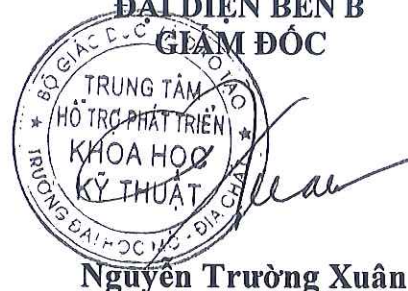 ĐẠI DIỆN BÊN B
GIÁM ĐỐC
BỘ GIÁO DỤC VÀ ĐÀO TẠO
TRUNG TÂM
HỖ TRỢ PHÁT TRIỂN
KHOA HỌC
KỸ THUẬT
TRƯỜNG ĐẠI HỌC MỎ - ĐỊA CHẤT
Nguyễn Trường Xuân